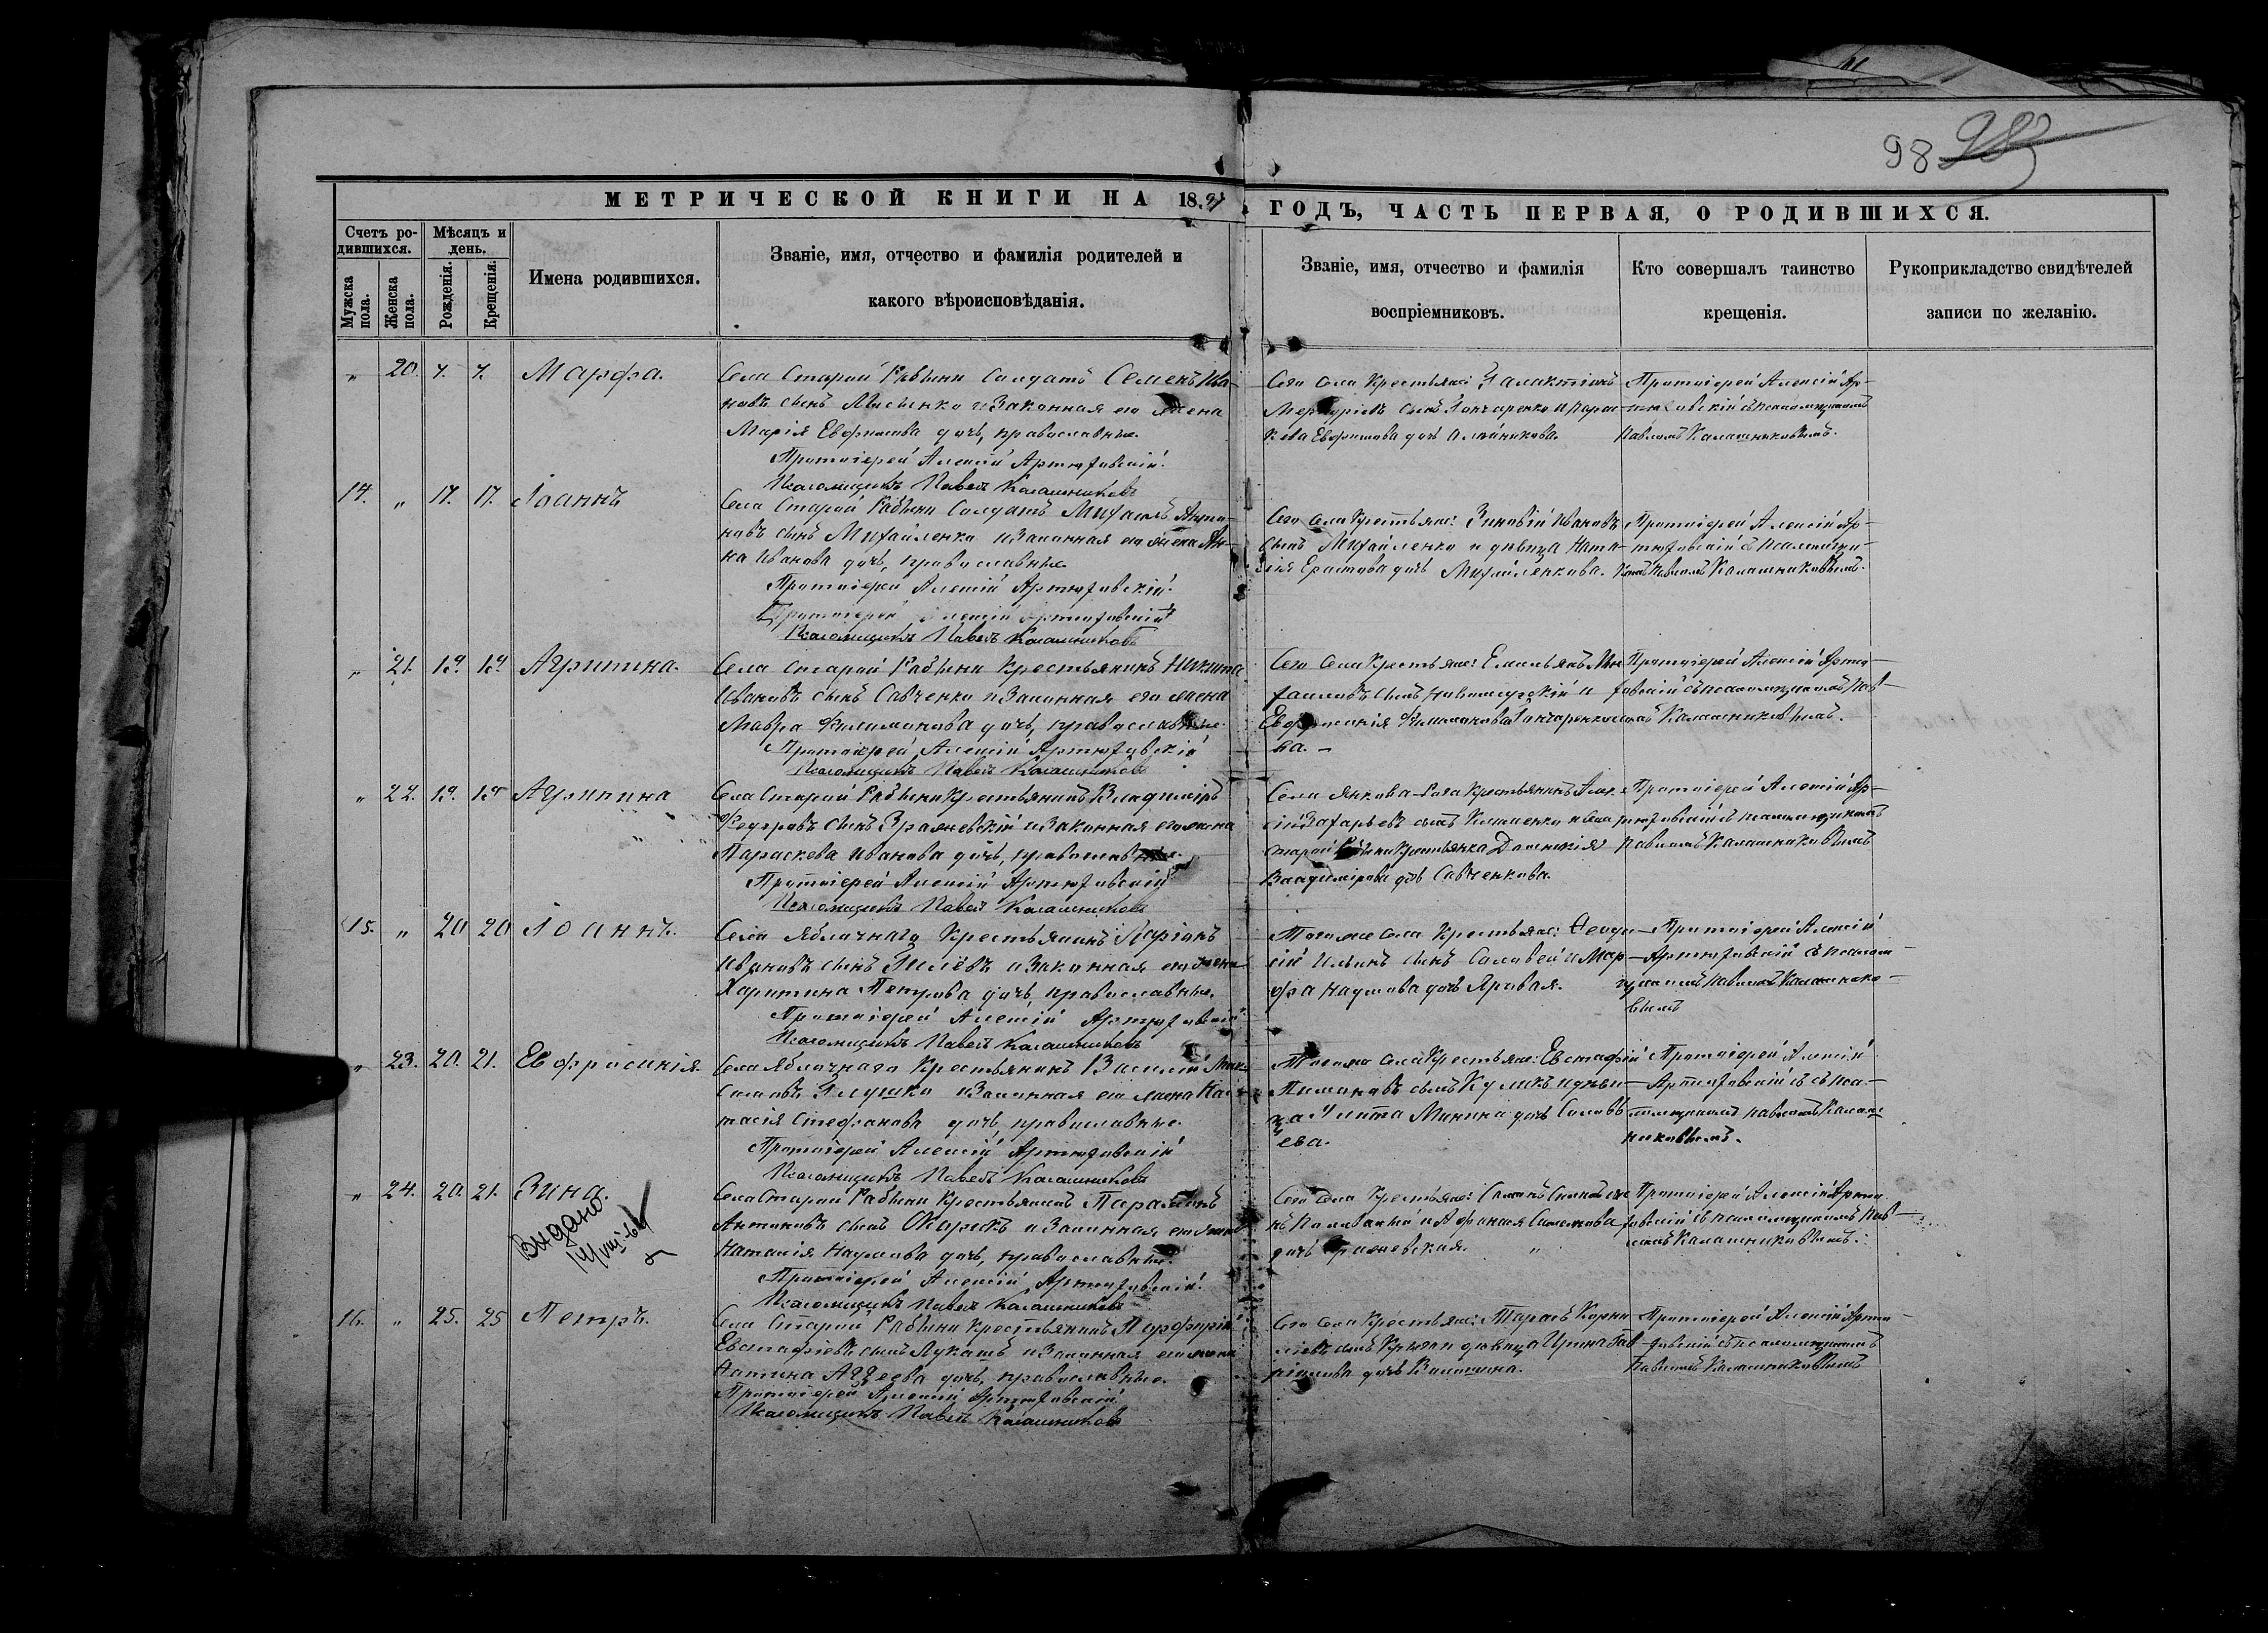 98
МЕТРИЧЕСКОЙ КНИГИ НА 18
ГОДЪ, ЧАСТЬ ПЕРВАЯ, О РОДИВШИХСЯ.
Счетъ ро-
дившихся.
Мужска
пола.
Женска
пола.
Мѣсяцъ и
день.
Рожденія.
Крещенія.
Имена родившихся.
Званіе, имя, отчество и фамилія родителей и
какого вѣроисповѣданія.
Званіе, имя, отчество и фамилія
воспріемниковъ.
Кто совершалъ таинство
крещенія.
Рукоприкладство свидѣтелей
записи по желанію.
„ 20. 7. 7. Марфа.
Села Старой Рябины Солдатъ Семенъ Ива-
новъ сынъ и Законная его жена
Марія Евфимова дочь, православные.
Протоіерей Алексій Артюховскій.
Псаломщикъ Павелъ Калашниковъ
Сего села Крестьяне: Галактіонъ
Меркуріевъ сынъ Гончаренко и Парас-
кева Евфимова дочь Олейникова.
Протоіерей Алексій Ар-
тюховскій съ псаломщикомъ
Павломъ Калашниковымъ.
14. „ 17. 17. Іоаннъ
Села Старой Рябины Солдатъ Михаилъ Анто-
новъ сынъ Михайленко и Законная его жена Ан-
на Иванова дочь, православные
Протоіерей Алексій Артюховскій.
Протоіерей Алексій Артюховскій
Псаломщикъ Павелъ Калашниковъ
Сего села Крестьяне: Зиновій Ивановъ
сынъ Михайленко и дѣвица Ната-
лія Ерастова дочь Михайленкова.
Протоіерей Алексій Ар-
тюховскій съ псаломщи-
комъ Павломъ Калашниковымъ.
„ 21. 19. 19. Агрипина.
Села Старой Рябины Крестьянинъ Никита
Ивановъ сынъ Савченко и Законная его жена
Мавра Филимонова дочь, православные.
Протоіерей Алексій Артюховскій
Псаломщикъ Павелъ Калашниковъ
Сего Села Крестьяне: Емельянъ Ми-
хаиловъ сынъ и
Евфросинія Филимонова Гончаренко-
ва. –
Протоіерей Алексій Артю-
ховскій съ псаломщикомъ Пав-
ломъ Калашниковымъ.
„ 22. 19. 19 Агрипина
Села Старой Рябины Крестьянинъ Владиміръ
Федоровъ сынъ и Законная его жена
Параскева Иванова дочь, православные.
Протоіерей Алексій Артюховскій
Псаломщикъ Павелъ Калашниковъ
Села Янкова-Рога Крестьянинъ Алек-
сій Захарьевъ сынъ и Села
Старой Рябины Крестьянка
Владимірова дочь Савченкова.
Протоіерей Алексій Ар-
тюховскій съ псаломщикомъ
Павломъ Калашниковымъ
15. „ 20 20 Іоаннъ.
Села Яблочнаго Крестьянинъ Ларіонъ
Ивановъ сынъ и Законная его жена
Харитина Петрова дочь, православные.
Протоіерей Алексій Артюховскій
Псаломщикъ Павелъ Калашниковъ
Того же Села Крестьяне: Феодо-
сій Ильинъ сынъ Соловей и Мар-
фа Наумова дочь Яровая.
Протоіерей Алексій
Артюховскій съ псалом-
щикомъ Павломъ Калашнико-
вымъ
„ 23. 20. 21. Евфросинія.
Села Яблочнаго Крестьянинъ Василій
Глушко и Законная его жена Нас-
тасія Стефанова дочь, православные.
Протоіерей Алексій Артюховскій
Псаломщикъ Павелъ Калашниковъ
Того же Села Крестьяне: Евстафій
Пимоновъ сынъ Куликъ и дѣви-
ца Улита Минина дочь Соловь-
ева.
Протоіерей Алексій
Артюховскій съ пса-
ломщикомъ Павломъ Калаш-
никовымъ.
„ 24. 20. 21. Зина.
Видано
Села Старой Рябины Крестьянинъ Парамонъ
Антоновъ сынъ и Законная его жена
Наталія Наумова дочь, православные.
Протоіерей Алексій Артюховскій.
Псаломщикъ Павелъ Калашниковъ
Сего Села Крестьяне:
и Афанасія Симонова
дочь
Протоіерей Алексій Артю-
ховскій съ псаломщикомъ Пав-
ломъ Калашниковымъ.
16. „ 25. 25 Петръ.
Села Старой Рябины Крестьянинъ Порфирій
Евстафіевъ сынъ Лукашъ и Законная его жена
Фотина дочь, православные.
Протоіерей Алексій Артюховскій
Псаломщикъ Павелъ Калашниковъ
Сего Села Крестьяне: Тарасъ Корни-
ліевъ сынъ и дѣвица Ирина Гав-
ріилова дочь
Протоіерей Алексій Артю-
ховскій съ псаломщикомъ
Павломъ Калашниковымъ